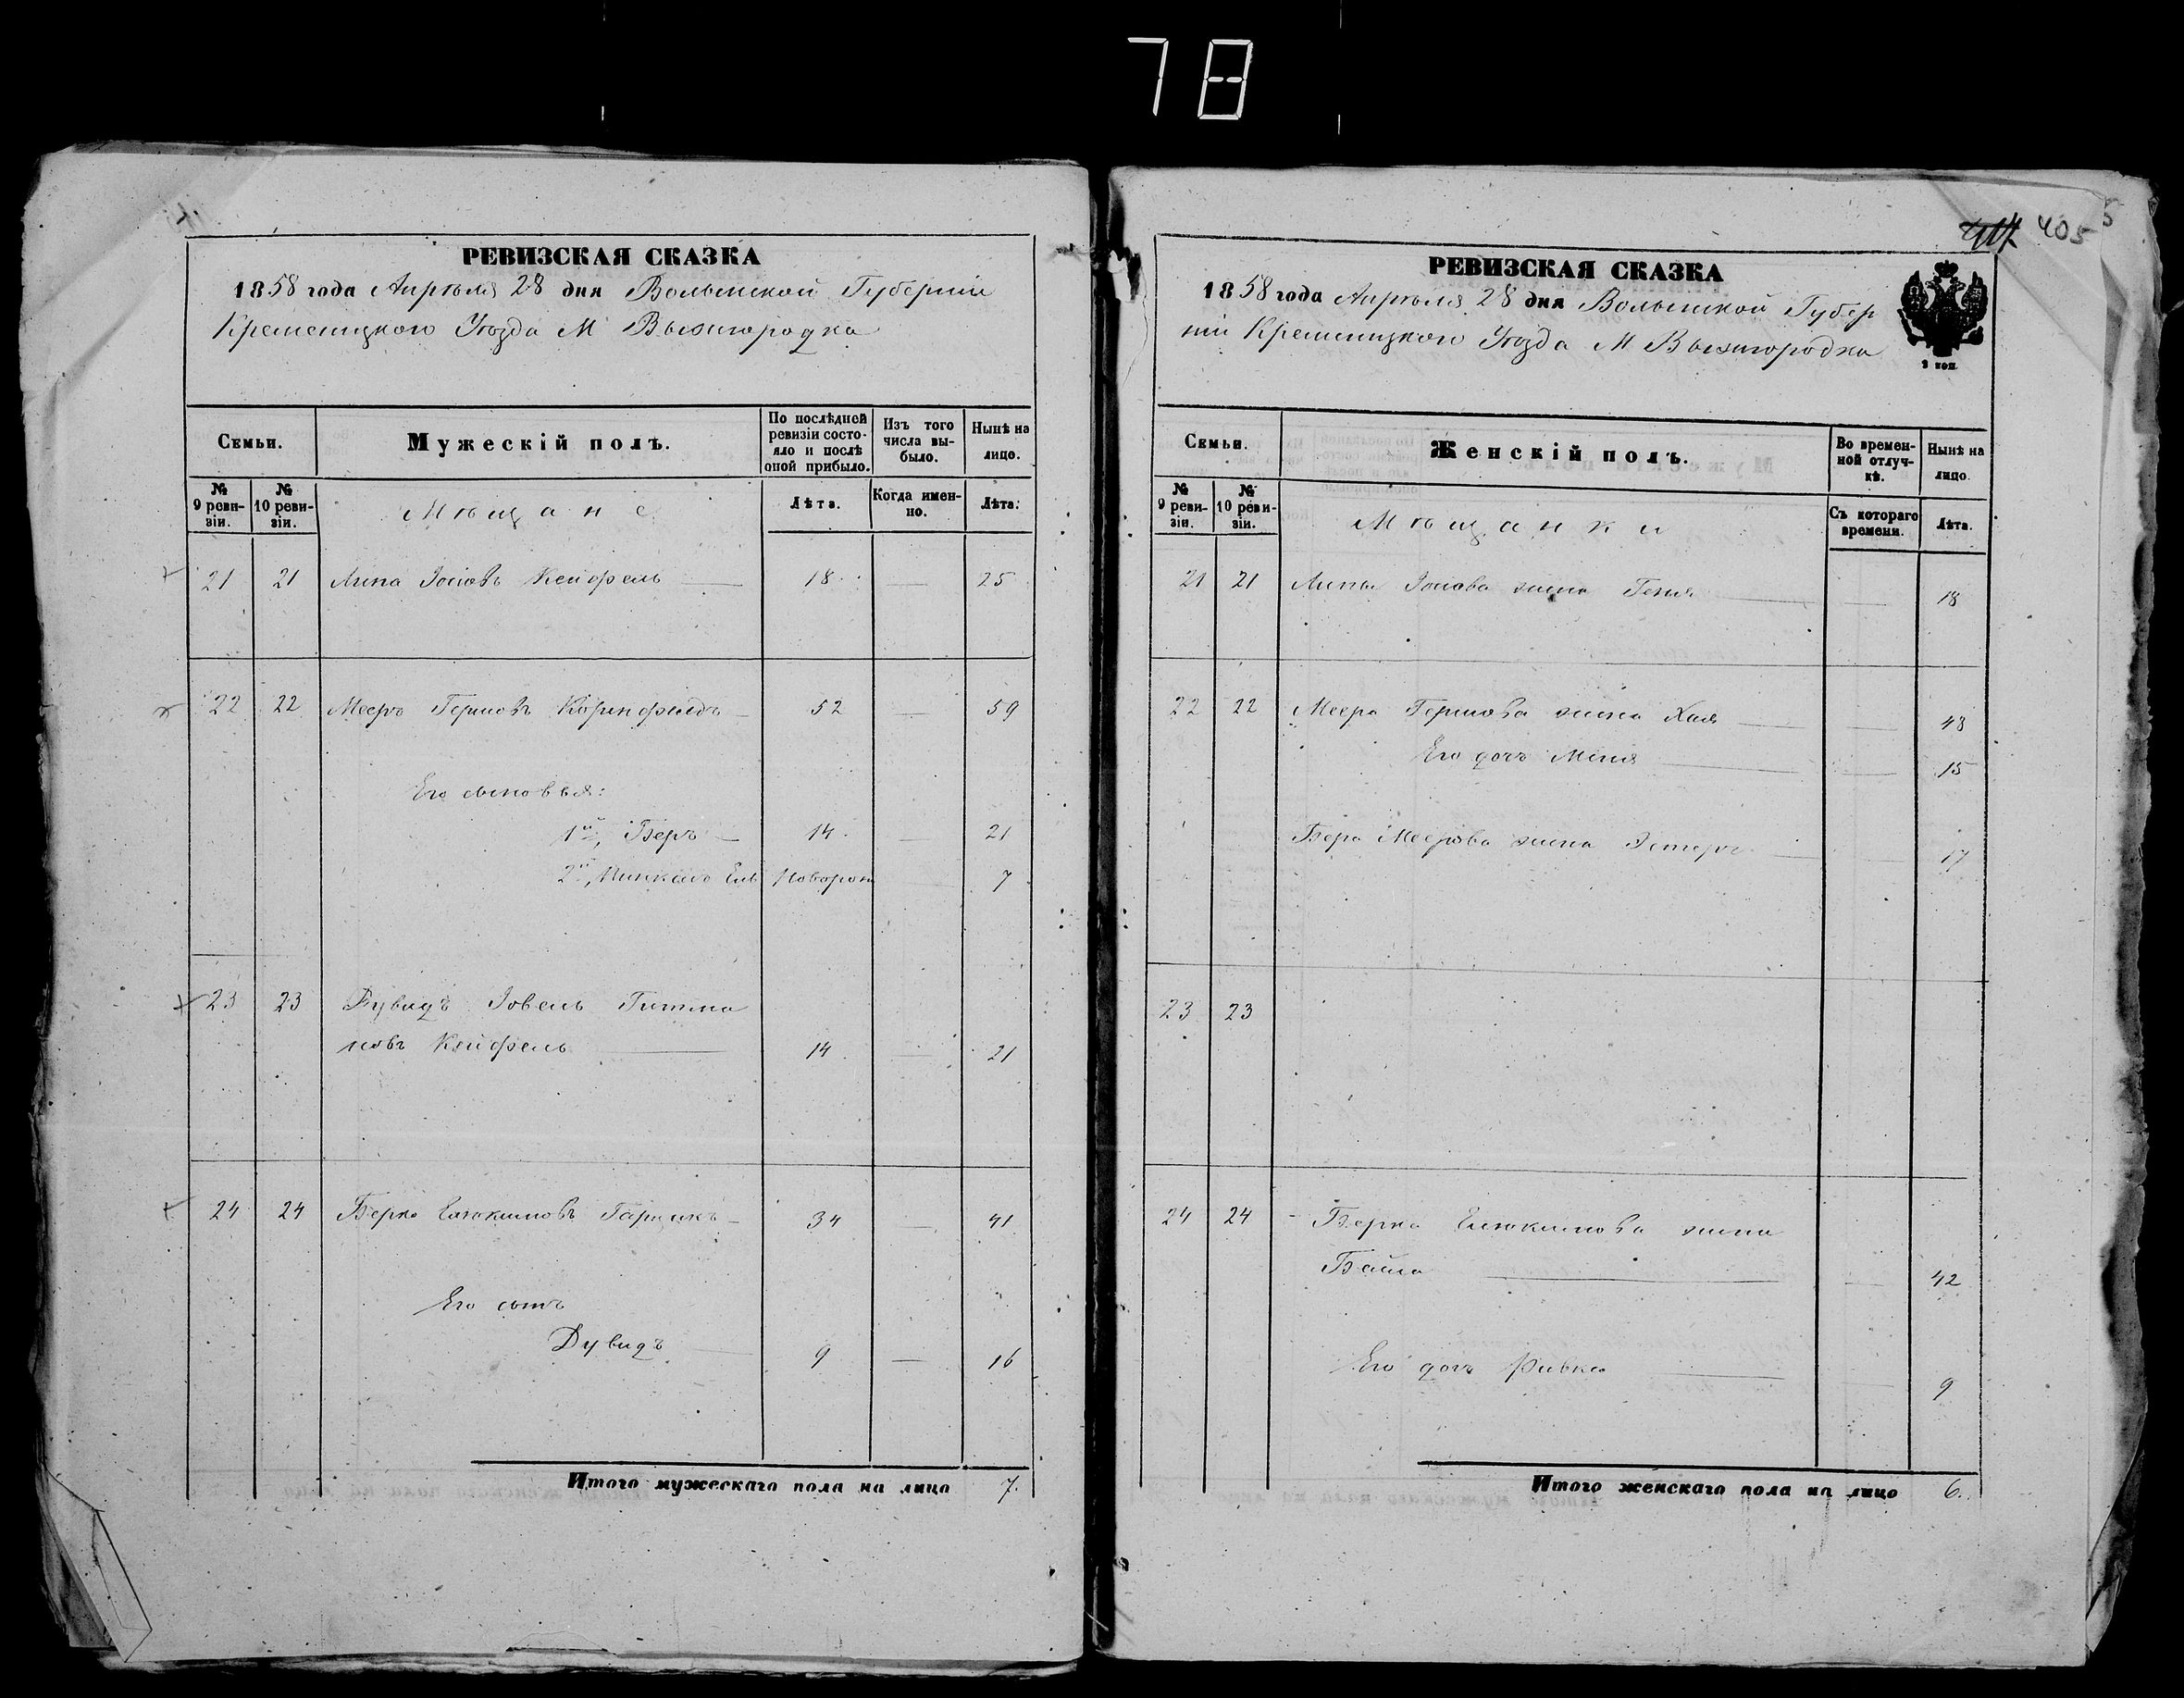 78
РЕВИЗСКАЯ СКАЗКА
1858 года Апрѣля 28 дня Волынской Губерніи
Кременецкого Уѣзда М Вышгородка
Семьи.
Мужескій полъ.
По послѣдней ревизіи состояло и послѣ оной прибыло.
Изъ того числа выбыло.
Нынѣ на лицо.
№ 9 ревизіи.
№ 10 ревизіи.
Мѣщане
Лѣта.
Когда именно.
Лѣта.
21 21 Липа Іосіовъ Кейфель 18 25
22 22 Мееръ Гершовъ Корнфельдъ 52 59
Его сыновья:
1й, Беръ 14 21
2й, Пинкасъ новорож 7
23 23 Дувидъ Іовель Гитма
новъ Кейфель 14 21
24 24 Берко Елюкимовъ 34 41
Его сынъ
Дувидъ 9 16
Итого мужескаго пола на лицо 7.
405
5
РЕВИЗСКАЯ СКАЗКА
1858 года Апрѣля 28 дня Волынской Губер
ніи Кременецкого Уѣзда М Вышгородка
2 коп.
Семьи.
Женскій полъ.
Во временной отлучкѣ.
Нынѣ на лицо.
№ 9 ревизіи.
№ 10 ревизіи.
Мѣщанки
Съ котораго времени.
Лѣта.
21 21 Липы Іосіова жена Геня 18
22 22 Меера Гершова жена Хая 48
Его дочь Меня 15
Бера Меерова жена Эстеръ 17
23 23
24 24 Берка Елюкимова жена
Бейла 42
Его дочь Ривка 9
Итого женскаго пола на лицо 6.